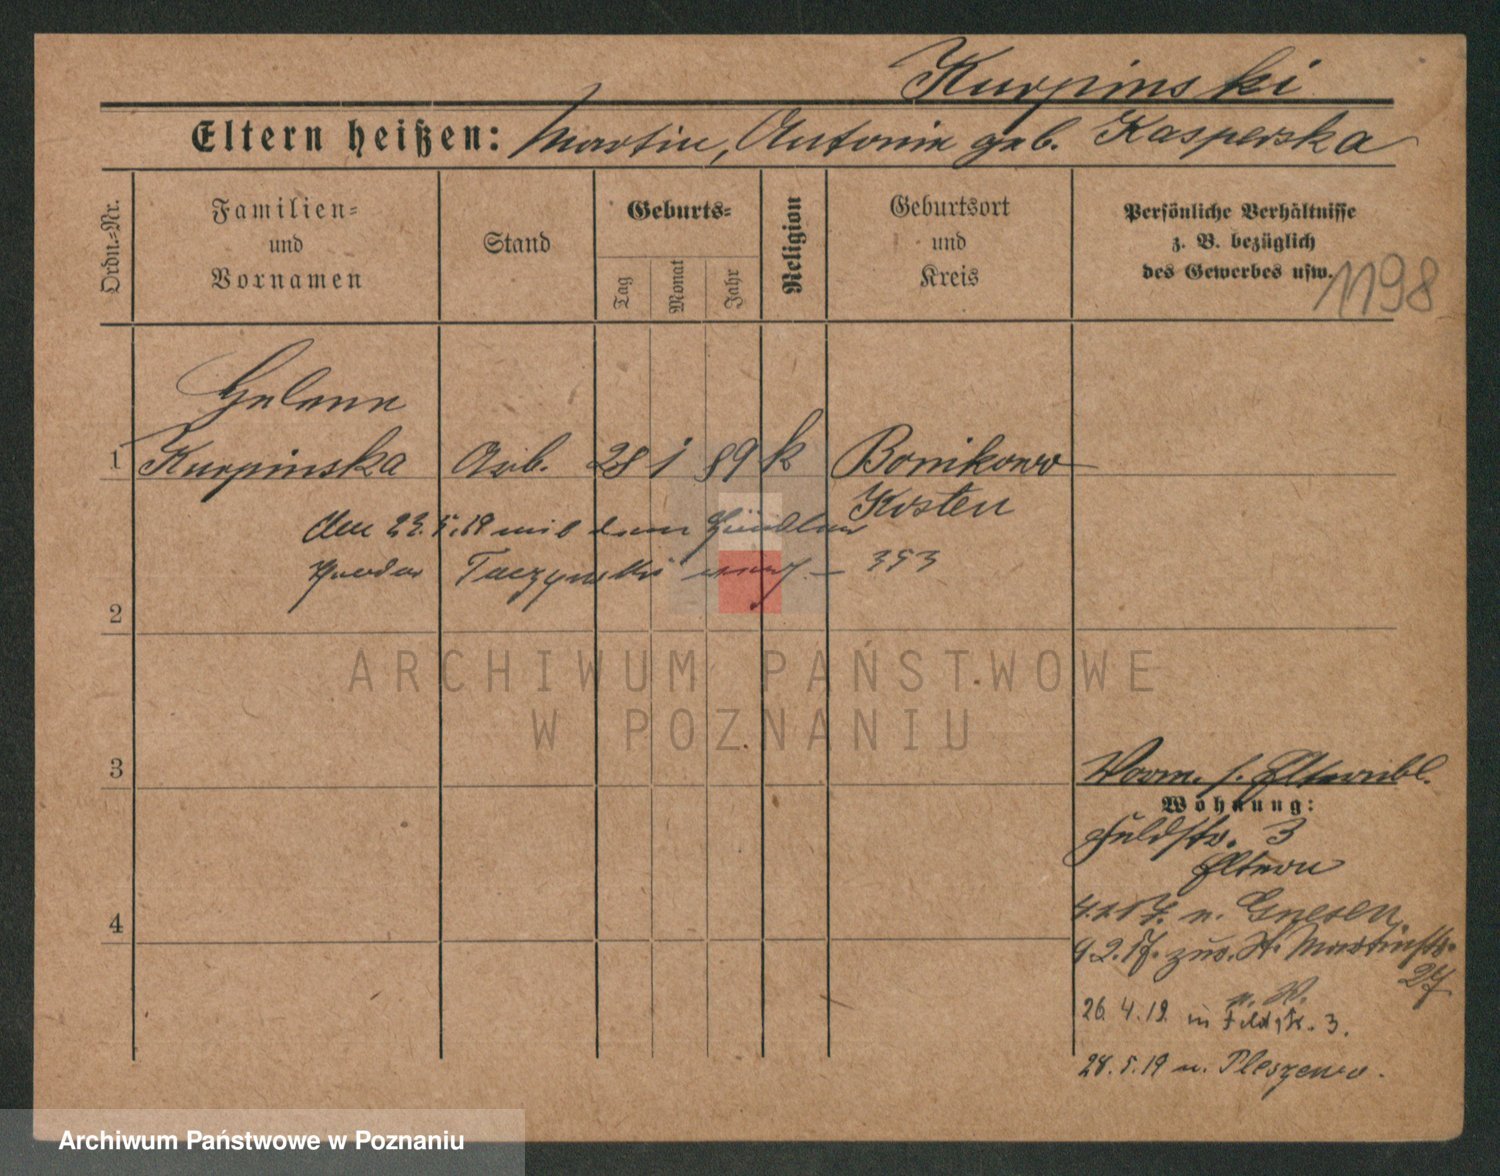 Kurpinski
Eltern heißen: Martin, Antonie geb. Kasperska
Ordn.-Nr.
Familien-
und
Vornamen
Stand
Geburts-
Tag
Monat
Jahr
Religion
Geburtsort
und
Kreis
Persönliche Verhältnisse
z. B. bezüglich
des Gewerbes usw.
1198
Helene
1 Kurpinska Arb. 28 1 89 k Bonikowo
Kosten
Am 23.5.19 mit dem Händler
Taczynski 353
2
ARCHIWUM PAŃSTWOWE
W POZNANIU
3
Vorm. s. Elternbl.
Wohnung:
Feldstr. 3
Eltern
4
n. Gnesen
9.2.17. zur. St. Martinstr.
27
26.4.19. in Feldstr. 3.
28.5.19 n. Pleszewo.
Archiwum Państwowe w Poznaniu